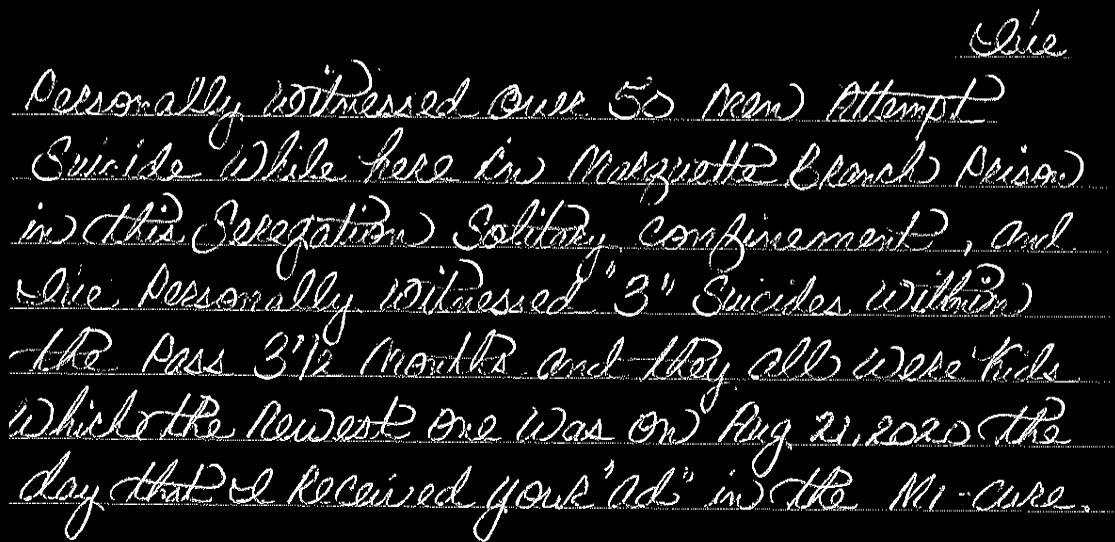 I've
Personally witnessed over 50 men Attempt
Suicide While here in Marquette Branch Prison
in this Seregation Solitary confinement, and
I've Personally witnessed "3" Suicides Within
the Pass 3 1/2 Months and they all Were kids
Which the Newest one Was on Aug. 21, 2020 the
day that I Received your "ad" in the MI-CURE.